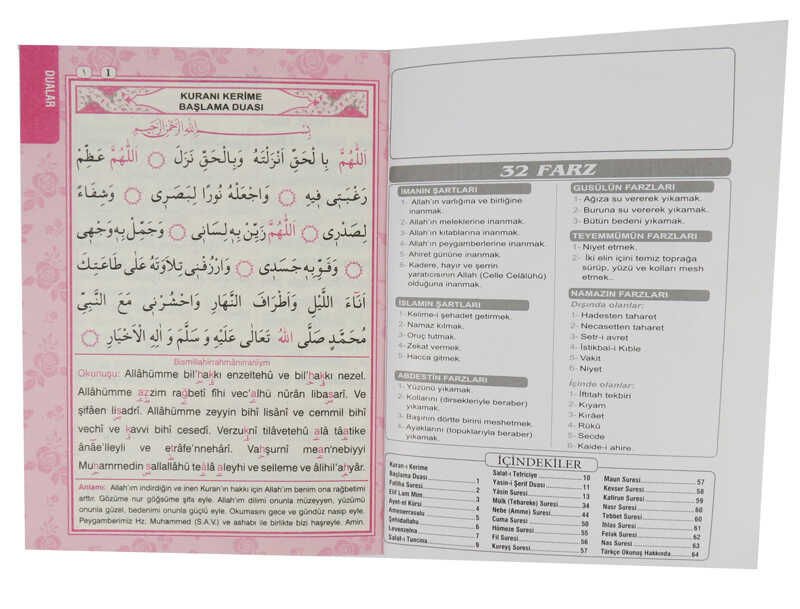 DUALAR
١ 1
KURANI KERİME
BAŞLAMA DUASI
بِسْمِ اللهِ الرَّحْمٰنِ الرَّحِيمِ
اَللّٰهُمَّ بِالْحَقِّ اَنْزَلْتَهُ وَبِالْحَقِّ نَزَلَ اَللّٰهُمَّ عَظِّمْ
رَغْبَتِى فِيهِ وَاجْعَلْهُ نُورًا لِبَصَرِى وَشِفَاءً
لِصَدْرِى اَللّٰهُمَّ زَيِّنْ بِهِ لِسَانِى وَجَمِّلْ بِهِ وَجْهِى
وَقَوِّ بِهِ جَسَدِى وَارْزُقْنِى تِلَاوَتَهُ عَلٰى طَاعَتِكَ
اٰنَاءَ اللَّيْلِ وَاَطْرَافَ النَّهَارِ وَاحْشُرْنِى مَعَ النَّبِيِّ
مُحَمَّدٍ صَلَّى اللهُ تَعَالٰى عَلَيْهِ وَسَلَّمَ وَاٰلِهِ الْاَخْيَارِ
Bismillahirrahmânirrahîym
Okunuşu: Allâhümme bil'hakkı enzeltehû ve bil'hakkı nezel.
Allâhümme azzim rağbetî fîhi vec'alhü nûrân libasarî. Ve
şifâen lisadrî. Allâhümme zeyyin bihî lisânî ve cemmil bihî
vechî ve kavvi bihî cesedî. Verzuknî tilâvetehû alâ tâatike
ânâe'lleyli ve etrâfe'nnehâri. Vahşurnî mean'nebiyyi
Muhammedin sallallâhü teâlâ aleyhi ve selleme ve âlihil'ahyâr.
Anlamı: Allah'ım indirdiğin ve inen Kuran'ın hakkı için Allah'ım benim ona rağbetimi
arttır. Gözüme nur göğsüme şifa eyle. Allah'ım dilimi onunla müzeyyen, yüzümü
onunla güzel, bedenimi onunla güçlü eyle. Okumasını gece ve gündüz nasip eyle.
Peygamberimiz Hz. Muhammed (S.A.V.) ve ashabı ile birlikte bizi haşreyle. Amin.
32 FARZ
İMANIN ŞARTLARI
1- Allah'ın varlığına ve birliğine
inanmak.
2- Allah'ın meleklerine inanmak.
3- Allah'ın kitablarına inanmak.
4- Allah'ın peygamberlerine inanmak.
5- Ahiret gününe inanmak.
6- Kadere, hayır ve şerrin
yaratıcısının Allah (Celle Celâlühü)
olduğuna inanmak.
İSLAMIN ŞARTLARI
1- Kelime-i şehadet getirmek.
2- Namaz kılmak.
3- Oruç tutmak.
4- Zekat vermek.
5- Hacca gitmek.
ABDESTİN FARZLARI
1- Yüzünü yıkamak.
2- Kollarını (dirsekleriyle beraber)
yıkamak.
3- Başının dörtte birini meshetmek.
4- Ayaklarını (topuklarıyla beraber)
yıkamak.
GUSÜLÜN FARZLARI
1- Ağıza su vererek yıkamak.
2- Buruna su vererek yıkamak.
3- Bütün bedeni yıkamak.
TEYEMMÜMÜN FARZLARI
1- Niyet etmek.
2- İki elin içini temiz toprağa
sürüp, yüzü ve kolları mesh
etmek..
NAMAZIN FARZLARI
Dışında olanlar:
1- Hadesten taharet
2- Necasetten taharet
3- Setr-i avret
4- İstikbal-i Kıble
5- Vakit
6- Niyet
İçinde olanlar:
1- İftitah tekbiri
2- Kıyam
3- Kırâet
4- Rükü
5- Secde
6- Kaide-i ahire.
İÇİNDEKİLER
Kuran-ı Kerime
Başlama Duası 1
Fatiha Suresi 2
Elif Lam Mim 3
Ayet-el Kürsi 4
Amenerrasulu 5
Şehidallahu 6
Levenzelna 7
Salat-ı Tuncina 9
Salat-ı Tefriciye 10
Yasin-i Şerif Duası 11
Yâsin Suresi 13
Mülk (Tebareke) Suresi 34
Nebe (Amme) Suresi 44
Cuma Suresi 50
Hümeze Suresi 55
Fil Suresi 56
Kureyş Suresi 57
Maun Suresi 57
Kevser Suresi 58
Kafirun Suresi 59
Nasr Suresi 60
Tebbet Suresi 60
İhlas Suresi 61
Felak Suresi 62
Nas Suresi 63
Türkçe Okunuş Hakkında 64